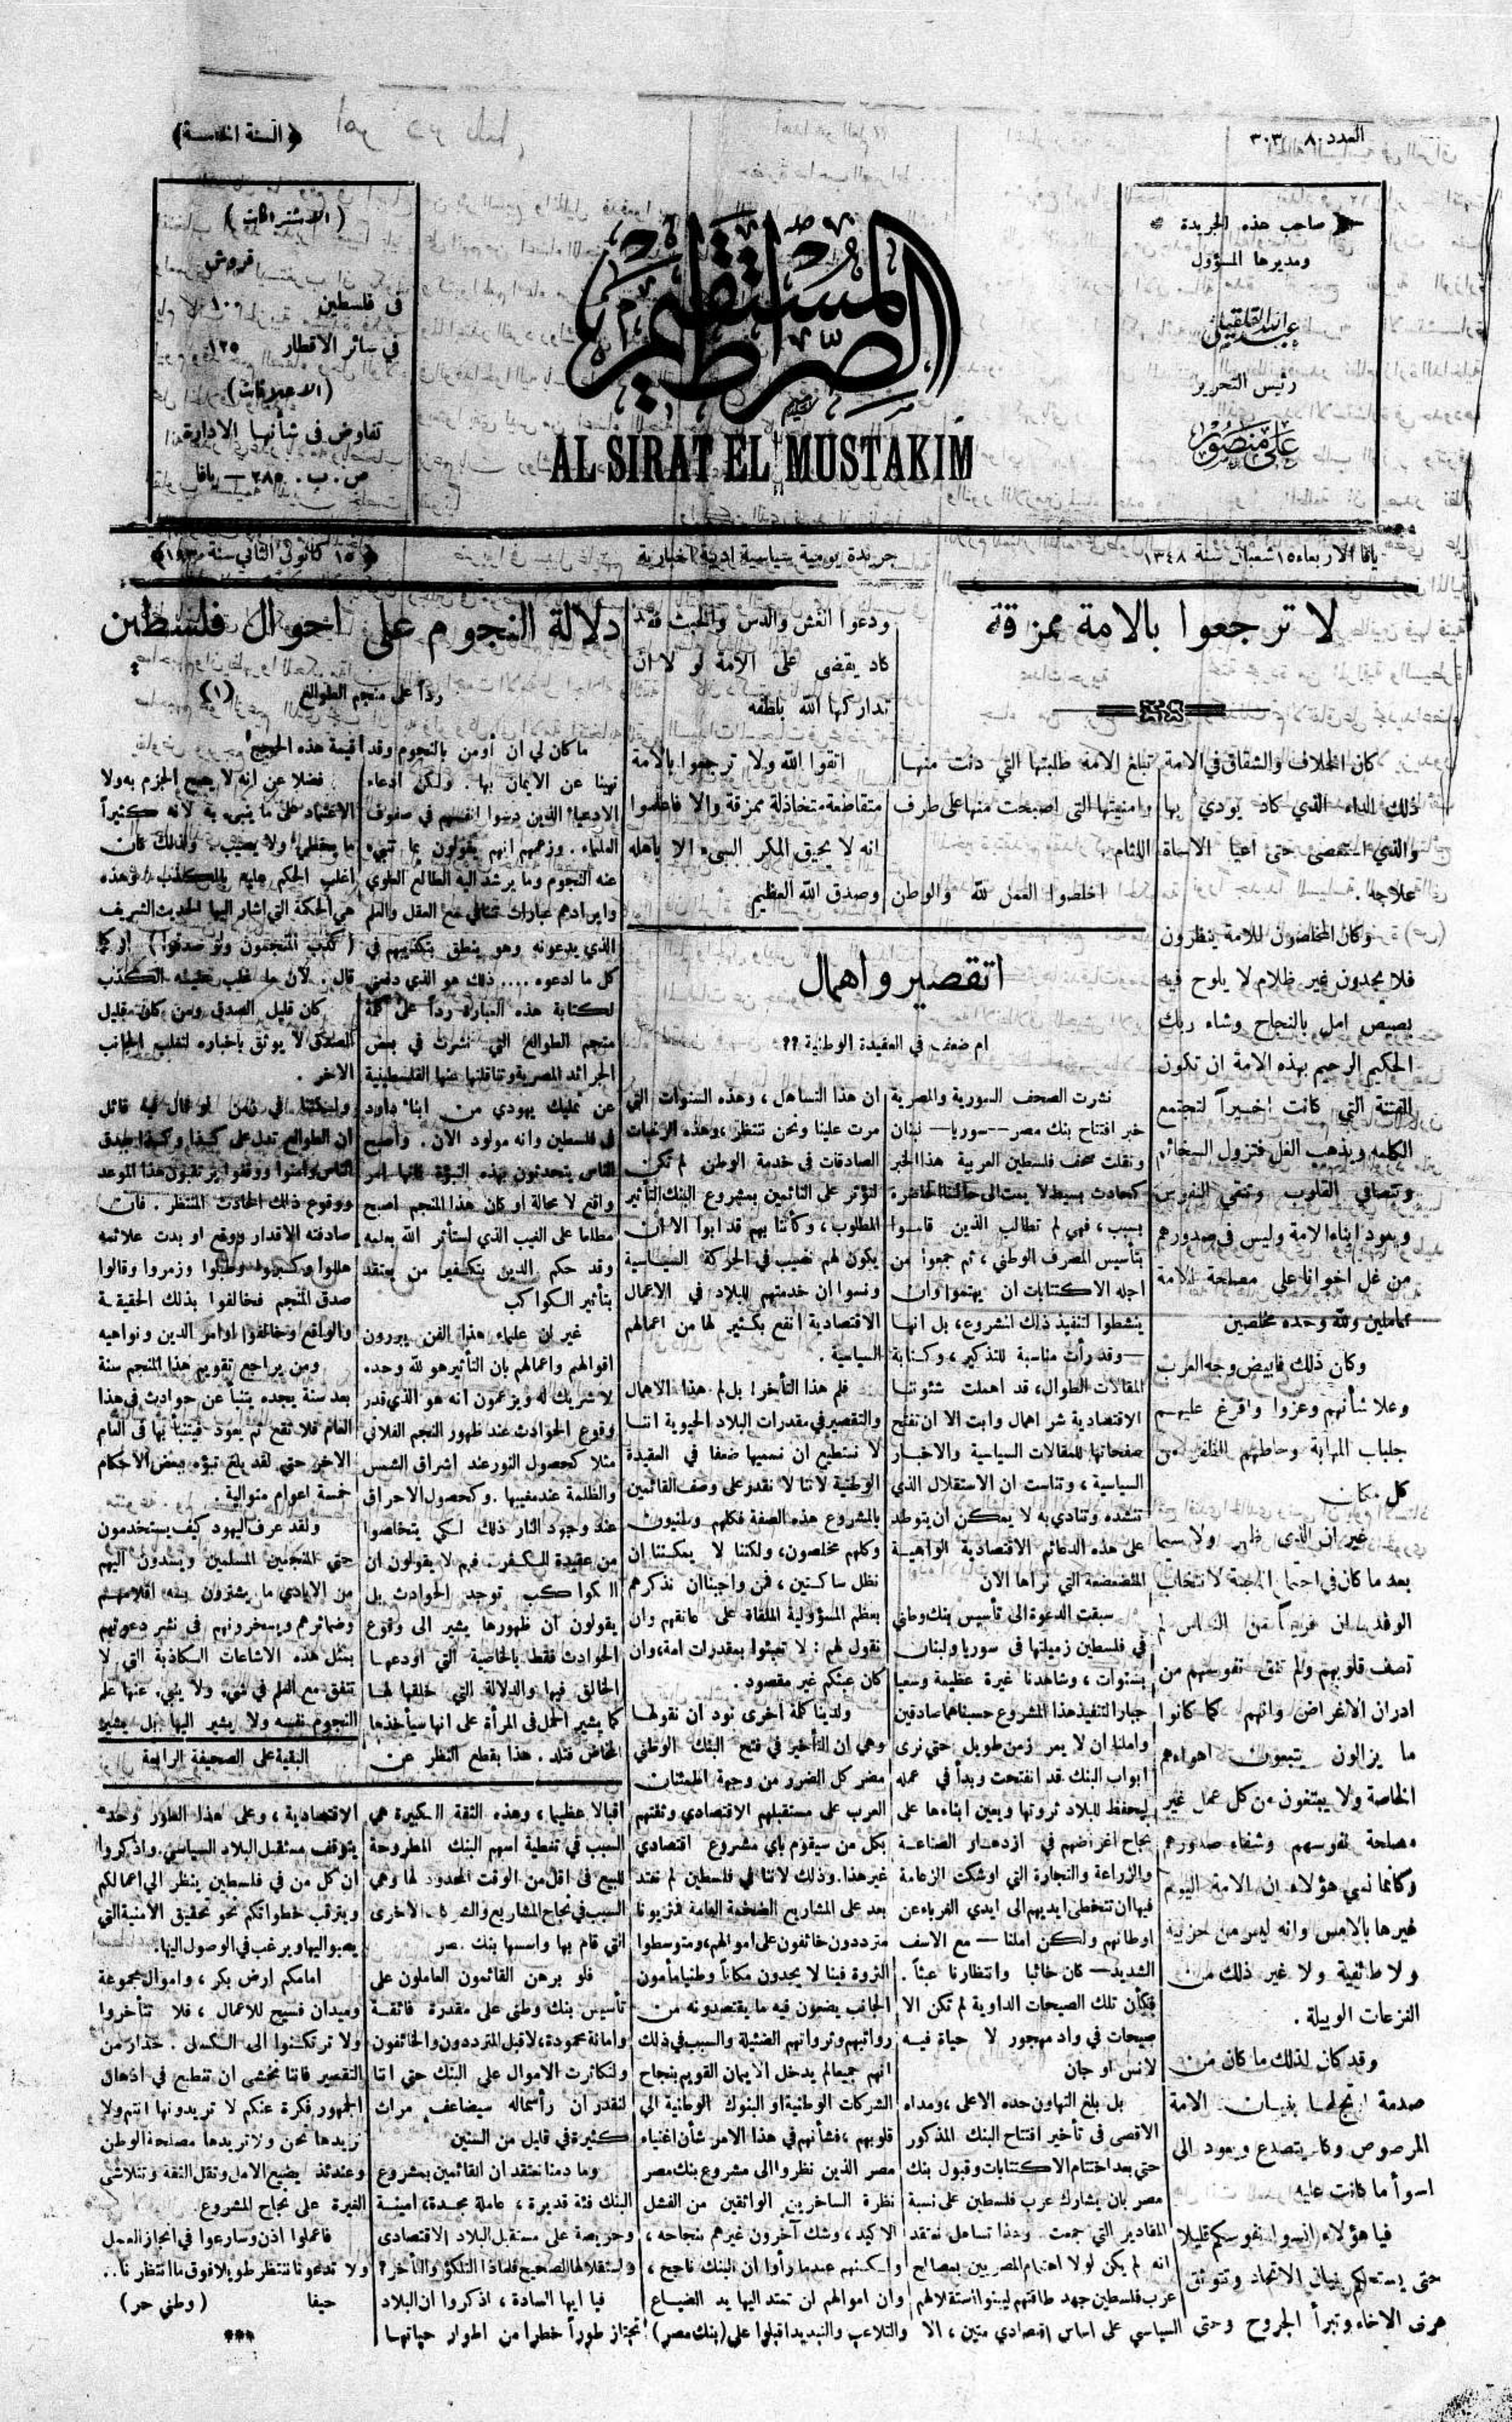 العدد ٨٠ — ٣٠٣
﴿ السنة الخامسة ﴾
صاحب هذه الجريدة
ومديرها المسؤول
عبدالله القلقيلي
رئيس التحرير
علي منصور
الصراط المستقيم
AL SIRAT EL MUSTAKIM
( الاشتراكات )
قروش
في فلسطين ١٠٠
في سائر الاقطار ١٢٥
( الاعلانات )
تفاوض في شأنها الادارة
ص . ب . ٢٨٥ — يافا
يافا الاربعاء ١٥ شعبان سنة ١٣٤٨
جريدة يومية سياسية ادبية اخبارية
١٥ كانون الثاني سنة
لا ترجعوا بالامة ممزقة
كان الخلاف والشقاق في الامة
ذلك الداء الذي كاد يودي بها
والذي استعصى حتى اعيا الاساة
علاجه .
وكان المخلصون للامة ينظرون
فلا يجدون غير ظلام لا يلوح فيه
بصيص امل بالنجاح وشاء ربك
الحكيم الرحيم بهذه الامة ان تكون
الفتنة التي كانت اخيراً لتجتمع
الكلمة ويذهب الغل فتزول السخائم
وتتصافي القلوب وتنقي النفوس
ويعود ابناء الامة وليس في صدورهم
من غل اخوانا على مصلحة الامة
عاملين ولله وحده مخلصين
وكان ذلك فابيض وجه العرب
وعلا شأنهم وعزوا وافرغ عليهم
جلباب المهابة وحاطهم الظفر من
كل مكان
غير ان الذي ظهر ولا سيما
بعد ما كان في اجتماع اللجنة لانتخاب
الوفد ان فريقاً من الناس لم
تصف قلوبهم ولم تنق نفوسهم من
ادران الاغراض وانهم كما كانوا
ما يزالون يتبعون اهواءهم
الخاصة ولا يبتغون من كل عمل غير
مصلحة نفوسهم وشفاء صدورهم
وكأنما نسي هؤلاء ان الامة اليوم
غيرها بالامس وانه ليس من حزبية
ولا طائفية ولا غير ذلك من
النزعات الوبيلة .
وقد كان لذلك ما كان من
صدمة ارتج لها بنيان الامة
المرصوص وكاد يتصدع ويعود الى
اسوأ ما كانت عليه
فيا هؤلاء انسوا نفوسكم قليلا
حتى يستحكم بنيان الاتحاد وتتوثق
عرى الاخاء وتبرأ الجروح وحتى
تبلغ الامة طلبتها التي دنت منها
وامنيتها التي اصبحت منها على طرف
اللثام .
اخلصوا العمل لله والوطن
ودعوا الغش والدس والخبث فقد
كاد يقضى على الامة لو لا ان
تداركها الله بلطفه
اتقوا الله ولا ترجعوا بالامة
متقاطعة متخاذلة ممزقة والا فاعلموا
انه لا يحيق المكر السيء الا باهله
وصدق الله العظيم
اتقصير واهمال
ام ضعف في العقيدة الوطنية ؟؟
نشرت الصحف السورية والمصرية
خبر افتتاح بنك مصر — سوريا — لبنان
ونقلت صحف فلسطين العربية هذا الخبر
كحادث بسيط لا يمت الى حالتنا الحاضرة
بسبب ، فهي لم تطالب الذين قاموا
بتأسيس المصرف الوطني ، ثم جمعوا من
اجله الاكتتابات ان يهتموا وان
ينشطوا لتنفيذ ذلك المشروع ، بل انها
— وقد رأت مناسبة للتذكير ، وكتابة
المقالات الطوال ، قد اهملت شئوننا
الاقتصادية شر اهمال وابت الا ان تفتح
صفحاتها للمقالات السياسية والاخبار
السياسية ، وتناست ان الاستقلال الذي
تنشده وتنادي به لا يمكن ان يتوطد
على هذه الدعائم الاقتصادية الواهية
المتضعضعة التي نراها الآن
سبقت الدعوة الى تأسيس بنك وطني
في فلسطين زميلتها في سوريا ولبنان
بسنوات ، وشاهدنا غيرة عظيمة وسعيا
جبارا لتنفيذ هذا المشروع حسبناهما صادقين
واملنا ان لا يمر زمن طويل حتى نرى
ابواب البنك قد انفتحت وبدأ في عمله
ليحفظ للبلاد ثروتها ويعين ابناءها على
نجاح اغراضهم في ازدهار الصناعة
والزراعة والتجارة التي اوشكت الزعامة
فيها ان تتخطى ايديهم الى ايدي الغرباء عن
اوطانهم ولكن املنا — مع الاسف
الشديد — كان خائبا وانتظارنا عبثاً .
فكأن تلك الصيحات الداوية لم تكن الا
صيحات في واد مهجور لا حياة فيه
لانس او جان
بل بلغ التهاون حده الاعلى ، ومداه
الاقصى في تأخير افتتاح البنك المذكور
حتى بعد اختتام الاكتتابات وقبول بنك
مصر بان يشارك عرب فلسطين على نسبة
المقادير التي جمعت وهذا تساهل نعتقد
انه لم يكن لولا اهتمام المصريين بمصالح
عرب فلسطين جهد طاقتهم ليبنوا استقلالهم
السياسي على اساس اقتصادي متين ، الا
ان هذا التساهل ، وهذه السنوات التي
مرت علينا ونحن ننتظر ، وهذه الرغبات
الصادقات في خدمة الوطن لم تكن
لتؤثر على القائمين بمشروع البنك التأثير
المطلوب ، وكأننا بهم قد ابوا الا ان
يكون لهم نصيب في الحركة السياسية
ونسوا ان خدمتهم للبلاد في الاعمال
الاقتصادية انفع بكثير لها من اعمالهم
السياسية .
فلم هذا التأخر ! بل لم هذا الاهمال
والتقصير في مقدرات البلاد الحيوية اننا
لا نستطيع ان نسميها ضعفا في العقيدة
الوطنية لاننا لا نقدر على وصف القائمين
بالمشروع هذه الصفة فكلهم وطنيون
وكلهم مخلصون ، ولكننا لا يمكننا ان
نظل ساكتين ، فمن واجبنا ان نذكرهم
بعظم المسؤولية الملقاة على عاتقهم وان
نقول لهم : لا تعبثوا بمقدرات امة ، وان
كان عبثكم غير مقصود .
ولدينا كلمة اخرى نود ان نقولها
وهي ان التأخير في فتح البنك الوطني
مضر كل الضرر من وجهة اطمئنان
العرب على مستقبلهم الاقتصادي وثقتهم
بكل من سيقوم باي مشروع اقتصادي
غير هذا . وذلك لاننا في فلسطين لم نعتد
بعد على المشاريع الضخمة العامة فمثريونا
مترددون خائفون على اموالهم ، ومتوسطوا
الثروة فينا لا يجدون مكاناً وطنيا مأمون
الجانب يضعون فيه ما يقتصدونه من
رواتبهم وثرواتهم الضئيلة والسبب في ذلك
انهم جميعا لم يدخل الايمان القويم بنجاح
الشركات الوطنية او البنوك الوطنية الى
قلوبهم ، فشأنهم في هذا الامر شأن اغنياء
مصر الذين نظروا الى مشروع بنك مصر
نظرة الساخرين الواثقين من الفشل
الاكيد ، وشك آخرون غيرهم بنجاحه ،
ولكنهم عندما رأوا ان البنك ناجح ،
وان اموالهم لن تمتد اليها يد الضياع
والتلاعب والتبديد اقبلوا على ( بنك مصر )
اقبالا عظيما ، وهذه الثقة الكبيرة هي
السبب في تغطية اسهم البنك المطروحة
للبيع في اقل من الوقت المحدود لها وهي
السبب في نجاح المشاريع والشركات الاخرى
التي قام بها واسسها بنك مصر
فلو برهن القائمون العاملون على
تأسيس بنك وطني على مقدرة فائقة
وامانة محمودة ، لاقبل المترددون والخائفون
ولتكاثرت الاموال على البنك حتى اننا
لنقدر ان رأسماله سيضاعف مرات
كثيرة في قليل من السنين
وما دمنا نعتقد ان القائمين بمشروع
البنك فئة قديرة ، عاملة مجدة ، امينة
وحريصة على مستقبل البلاد الاقتصادي
واستقلالها الصحيح فلماذا التلكؤ والتأخر ؟
فيا ايها السادة ، اذكروا ان البلاد
تجتاز طوراً خطرا من اطوار حياتها
الاقتصادية ، وعلى هذا الطور وحده
يتوقف مستقبل البلاد السياسي . واذكروا
ان كل من في فلسطين ينظر الى اعمالكم
ويترقب خطواتكم نحو تحقيق الامنية التي
يصبو اليها ويرغب في الوصول اليها .
امامكم ارض بكر ، واموال مجموعة
وميدان فسيح للاعمال ، فلا تتأخروا
ولا ترتكنوا الى الكسل . حذار من
التقصير فاننا نخشى ان تنطبع في اذهان
الجمهور فكرة عنكم لا تريدونها انتم ولا
نريدها نحن ولا تريدها مصلحة الوطن
وعندئذ يضيع الامل وتقل الثقة وتتلاشى
الغيرة على نجاح المشروع .
فاعملوا اذن وسارعوا في انجاز العمل
ولا تدعونا ننتظر طويلا فوق ما انتظرنا ..
حيفا ( وطني حر )
***
دلالة النجوم على احوال فلسطين
رداً على منجم الطوالع (١)
ما كان لي ان أومن بالنجوم وقد
نهينا عن الايمان بها . ولكن ادعاء
الادعياء الذين دسوا انفسهم في صفوف
العلماء . وزعمهم انهم يقولون بما تنبيء
عنه النجوم وما يرشد اليه الطالع العلوي
وايرادهم عبارات تتنافى مع العقل والعلم
الذي يدعونه وهو ينطق بتكذيبهم في
كل ما ادعوه .... ذلك هو الذي دفعني
لكتابة هذه العبارة رداً على كلمة
منجم الطوالع التي نشرت في بعض
الجرائد المصرية وتناقلتها عنها الفلسطينية
عن تمليك يهودي من ابناء داود
في فلسطين وانه مولود الآن . واصبح
الناس يتحدثون بهذه النبوة كأنها امر
واقع لا محالة او كان هذا المنجم اصبح
مطلعا على الغيب الذي استأثر الله بعلمه
وقد حكم الدين بتكفير من يعتقد
بتأثير الكواكب
غير ان علماء هذا الفن يبررون
اقوالهم واعمالهم بان التأثير هو لله وحده
لا شريك له ويزعمون انه هو الذي قدر
وقوع الحوادث عند ظهور النجم الفلاني
مثلا كحصول النور عند اشراق الشمس
والظلمة عند مغيبها . وكحصول الاحراق
عند وجود النار ذلك لكي يتخلصوا
من عقيدة الكفر . فهم لا يقولون ان
الكواكب توجد الحوادث بل
يقولون ان ظهورها يشير الى وقوع
الحوادث فقط بالخاصية التي اودعها
الخالق فيها والدلالة التي خلقها لها
كما يشير الحمل في المرأة على انها سيأخذها
المخاض فتلد . هذا بقطع النظر عن
قيمة هذه الحجج !
فضلا عن انه لا يصح الجزم به ولا
الاعتماد على ما ينبيء به لانه كثيراً
ما يخطيء ولا يصيب ولذلك كان
اغلب الحكم عليه بالكذب وهذه
هي الحكمة التي اشار اليها الحديث الشريف
( كذب المنجمون ولو صدقوا ) او كما
قال . لان ما غلب عليه الكذب
كان قليل الصدق ومن كان قليل
الصدق لا يوثق باخباره لتغلب الجانب
الآخر .
ولكننا في زمن لو قال فيه قائل
ان الطوالع تدل على كذا وكذا صدق
الناس وآمنوا ووقفوا يرتقبون هذا الموعد
ووقوع ذلك الحادث المنتظر . فان
صادفته الاقدار ووقع او بدت علائمه
هللوا وكبروا وطبلوا وزمروا وقالوا
صدق المنجم فخالفوا بذلك الحقيقة
والواقع وخالفوا اوامر الدين ونواهيه
ومن يراجع تقويم هذا المنجم سنة
بعد سنة يجده يتنبأ عن حوادث في هذا
العام فلا تقع ثم يعود فيتنبأ بها في العام
الآخر حتى لقد بلغ تنبؤه ببعض الاحكام
خمسة اعوام متوالية .
ولقد عرف اليهود كيف يستخدمون
حتى المنجمين المسلمين ويسدون اليهم
من الايادي ما يشترون به اقلامهم
وضمائرهم ويسخرونهم في نشر دعوتهم
بمثل هذه الاشاعات الكاذبة التي لا
تتفق مع العلم في شيء ولا ينبيء عنها علم
النجوم نفسه ولا يشير اليها بل يشير
البقية على الصحيفة الرابعة